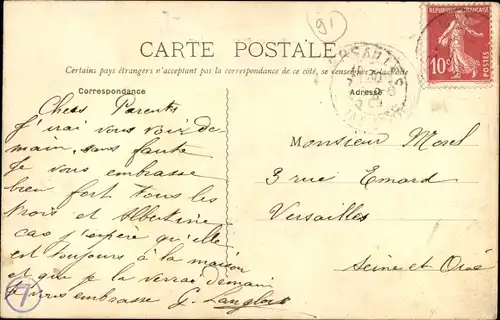 91
CARTE POSTALE
Certains pays étrangers n'acceptant pas la correspondance de ce côté, se renseigner à la Poste
Correspondance
Adresse
RÉPUBLIQUE FRANÇAISE
10c
POSTES
Chers Parents
J'irai vous voir de
main, sans faute
Je vous embrasse
bien fort tous les
trois et Albertine
cas j'espère qu'elle
est toujours à la maison
et que je la verrai demain
Je vous embrasse G. Langlois
Monsieur Morel
3 rue Emard
Versailles
Seine et Oise
7